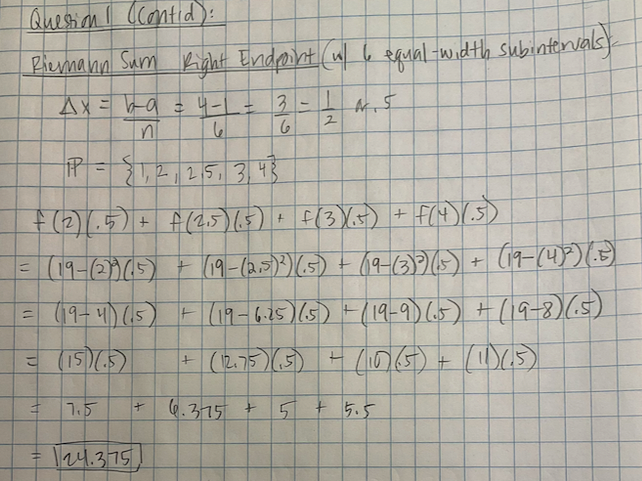 Question 1 (Cont'd):
Riemann Sum Right Endpoint (w/ 6 equal-width subintervals)
Δx = b-a/n = 4-1/6 = 3/6 = 1/2 or .5
P = {1, 2, 2.5, 3, 4}
f(2)(.5) + f(2.5)(.5) + f(3)(.5) + f(4)(.5)
= (19-(2)²)(.5) + (19-(2.5)²)(.5) + (19-(3)²)(.5) + (19-(4)²)(.5)
= (19-4)(.5) + (19-6.25)(.5) + (19-9)(.5) + (19-8)(.5)
= (15)(.5) + (12.75)(.5) + (10)(.5) + (11)(.5)
= 7.5 + 6.375 + 5 + 5.5
= 24.375